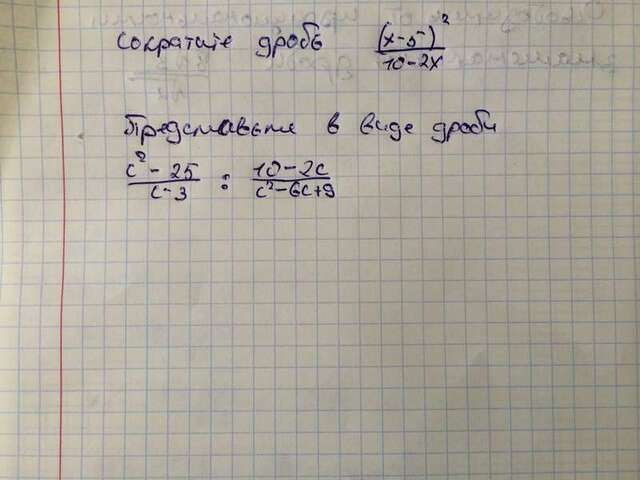 сократите дробь (x-5)²/10-2x
Представьте в виде дроби
c²-25/c-3 : 10-2c/c²-6c+9